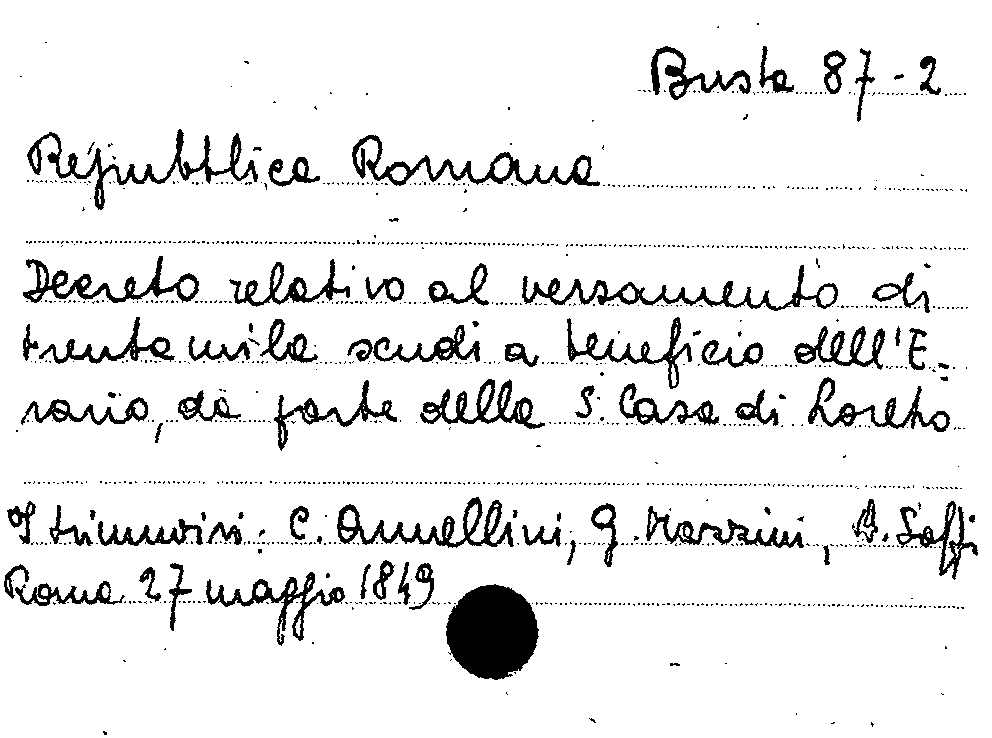 Busta 87-2
Repubblica Romana
Decreto relativo al versamento di
trentamila scudi a beneficio dell'E=
rario, da parte della S. Casa di Loreto
I triumviri: C. Armellini, G. Mazzini, A. Saffi
Roma 27 maggio 1849